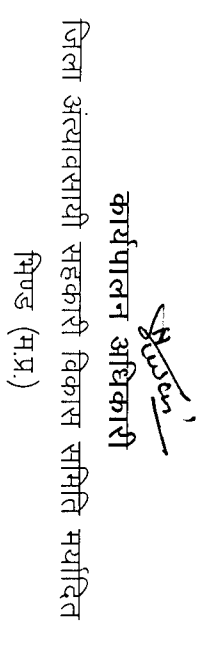 कार्यपालन अधिकारी
जिला अंत्यावसायी सहकारी विकास समिति मर्यादित
भिण्ड (म.प्र.)